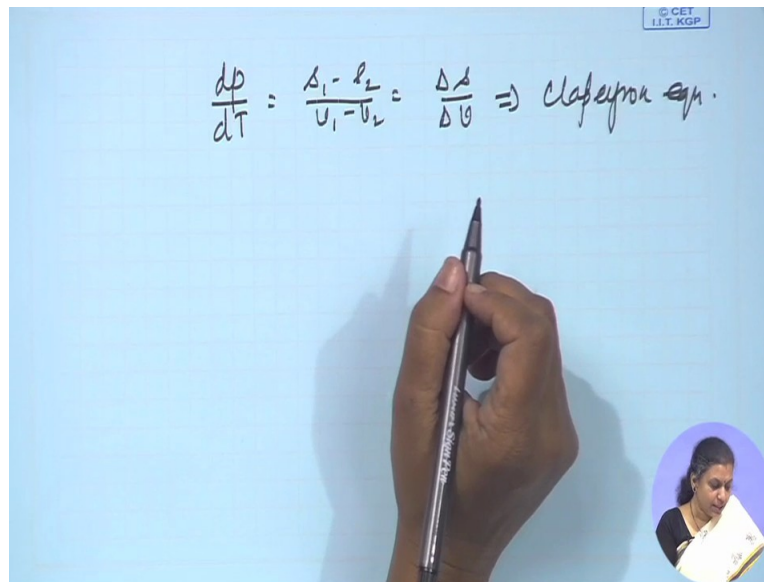 © CET
I.I.T. KGP
dp/dT = s₁ - s₂/v₁ - v₂ = Δs/Δv ⇒ Clapeyron eqn.